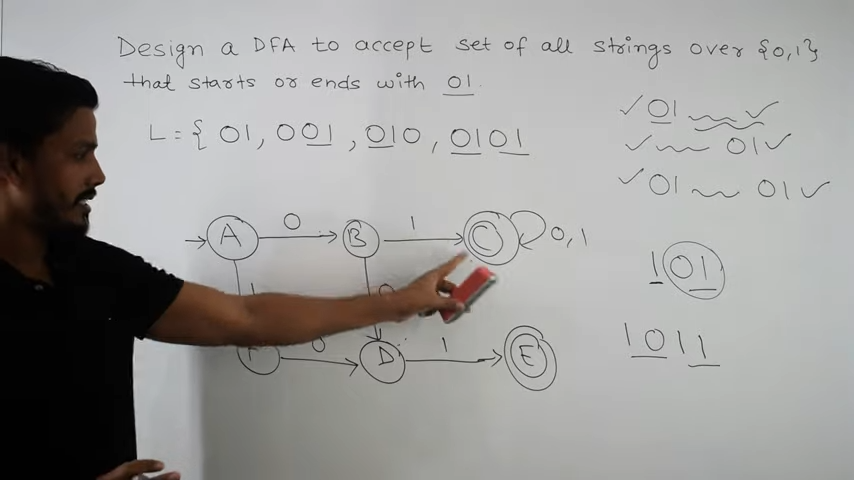 Design a DFA to accept set of all strings over {0,1}
that starts or ends with 01.
L = { 01, 001, 010, 0101
✓ 01 ✓
✓ 01 ✓
✓ 01 01 ✓
A 0 B 1 C 0,1
101
1 0
1011
F 0 D 1 E